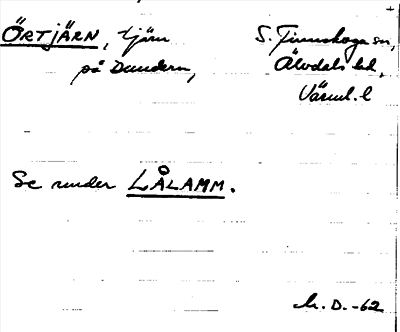 ÖRTJÄRN, tjärn S. Finnskoga sn,
på Dundern, Älvdals hd,
Värml. l
Se under LÅLAMM.
D. -62